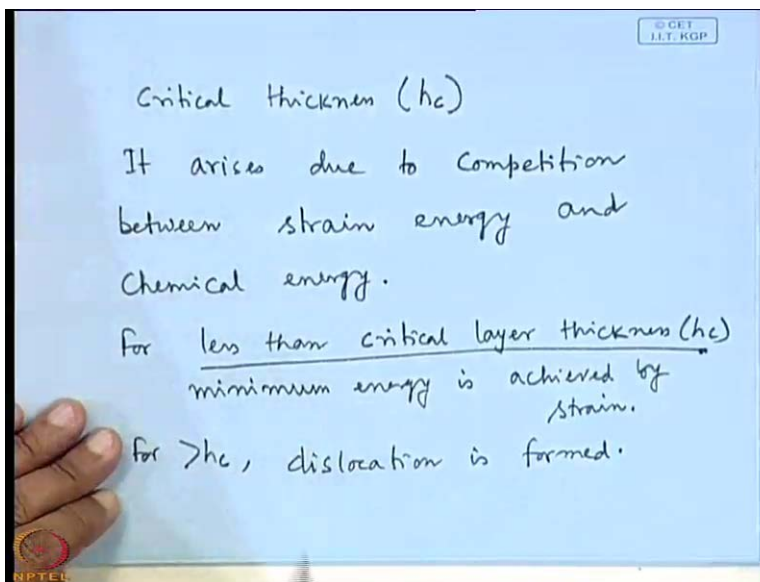 © CET
I.I.T. KGP
Critical thickness (hc)
It arises due to competition
between strain energy and
Chemical energy.
For less than critical layer thickness (hc)
minimum energy is achieved by
strain.
for >hc, dislocation is formed.
NPTEL